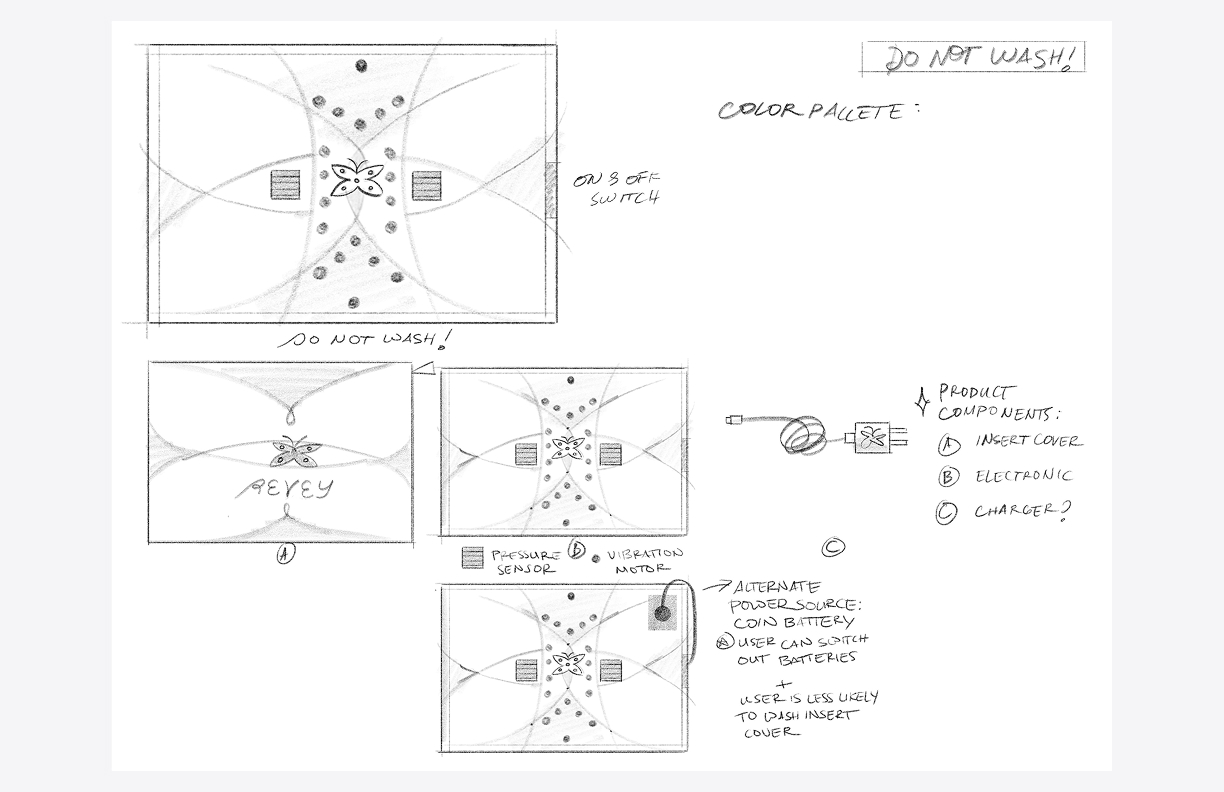 DO NOT WASH!
COLOR PALLETE:
ON & OFF
SWITCH
DO NOT WASH!
REVEY
A
PRESSURE
SENSOR
B
VIBRATION
MOTOR
C
PRODUCT
COMPONENTS:
A INSERT COVER
B ELECTRONIC
C CHARGER?
ALTERNATE
POWER SOURCE:
COIN BATTERY
A USER CAN SWITCH
OUT BATTERIES
+
USER IS LESS LIKELY
TO WASH INSERT
COVER